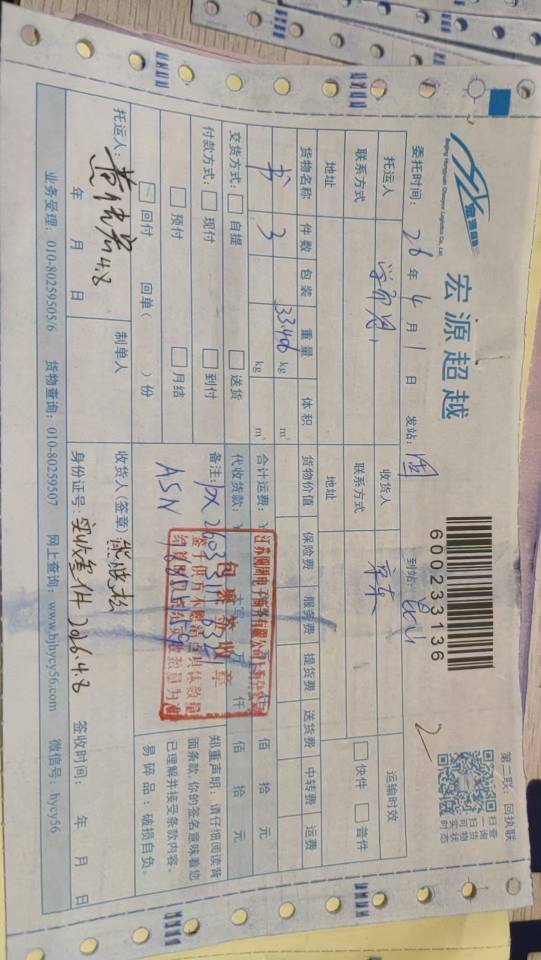 宏源超越
Beijing Hongyuan Chaoyue Logistics Co., Ltd.
600233136
第二联：回执联
扫一扫
查询货物
实时状态
委托时间：26 年 4 月 1 日 发站： 到站：
托运人 收货人 京东 运输时效
联系方式 联系方式 快件 普件
地址 地址
货物名称 件数 包装 重量 体积 货物价值 保险费 服务费 提货费 送货费 中转费 运费
书 3 33.406 kg m³
kg m³
交货方式： 自提 送货 合计运费：¥ 佰 拾 元
付款方式： 现付 到付 代收货款：¥ 元 仟 佰 拾 元
预付 月结 备注：
回付 回单（ ）份 ASN
包裹签收章
郑重声明：请仔细阅读背
面条款，你的签名意味着您
已理解并接受条款内容。
易碎品：破损自负。
托运人： 4.8 制单人 收货人(签章)
年 月 日 身份证号：实收叁件 2026.4.8 签收时间： 年 月 日
业务受理：010-80259505/6 货物查询：010-80259507 网上查询：www.bjhycy56.com 微信号：hycy56